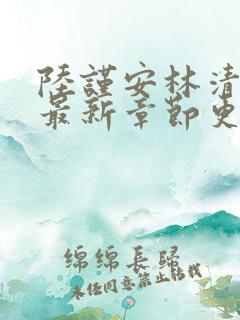 陸謹安林清
最新章節更
綿綿長歸
未经同意禁止转载